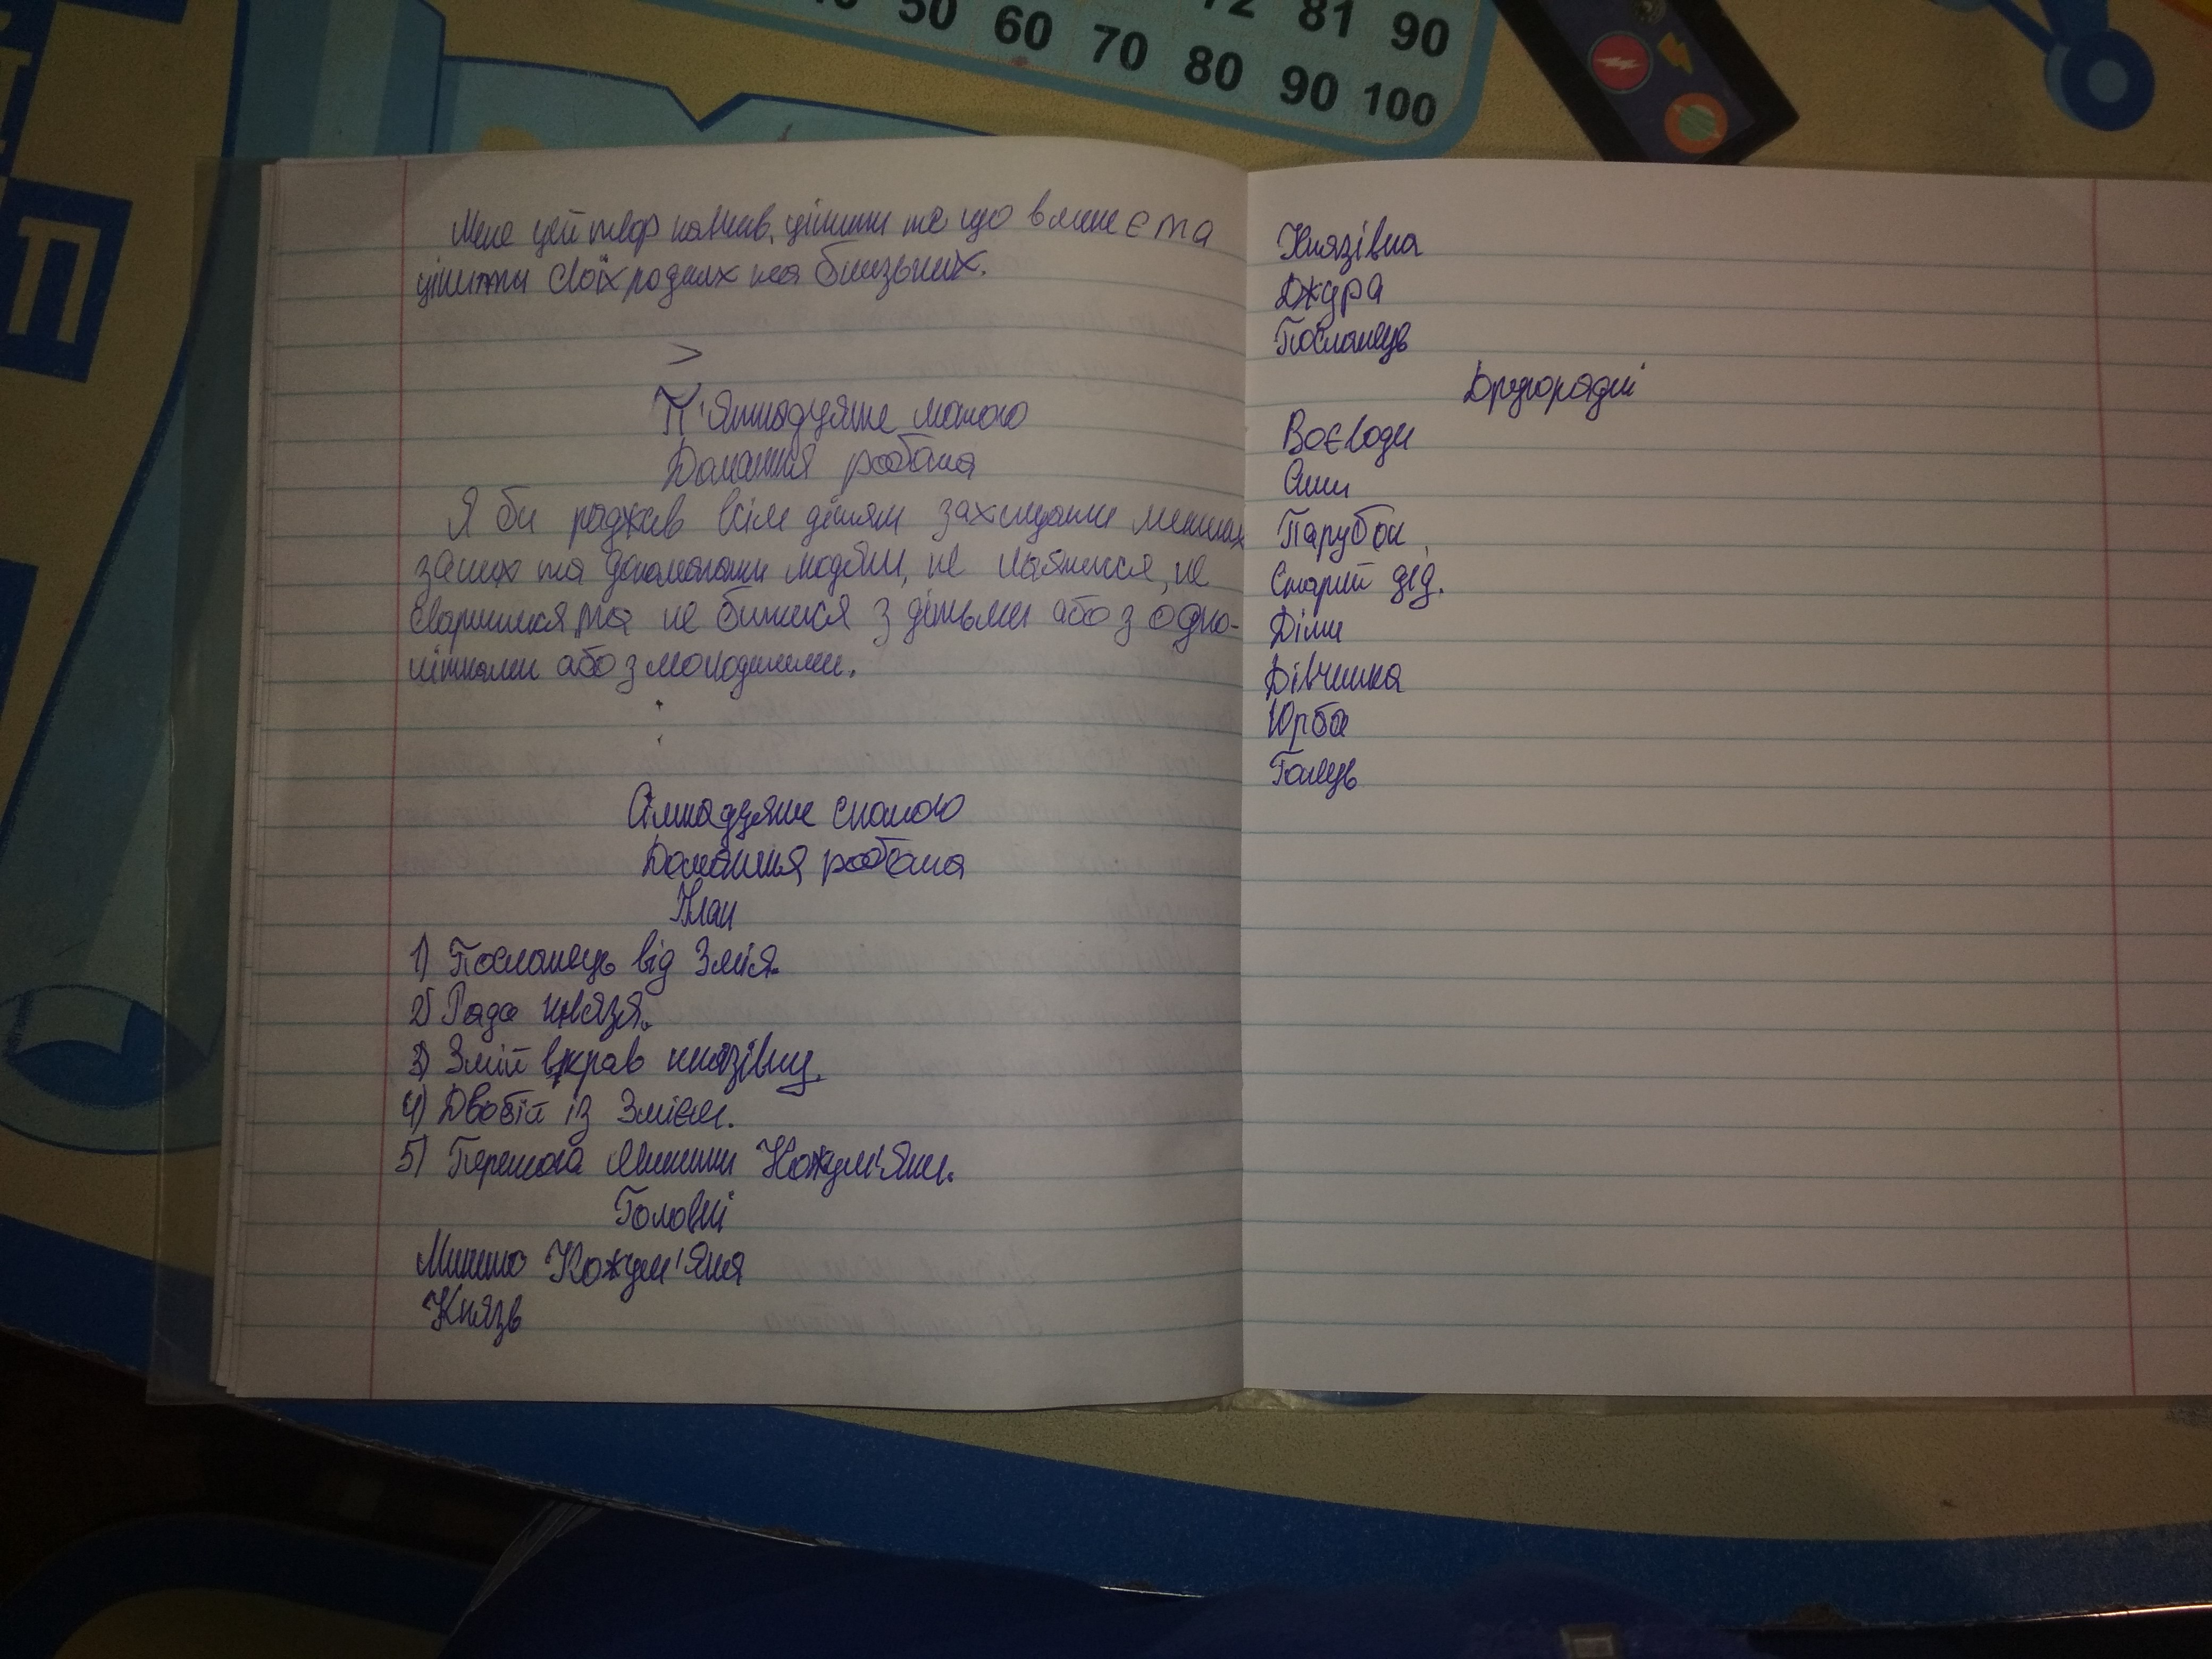 50 60 70 80 90 100
72 81 90
П
Мене цей твір навчив, цінити те що в мене є та
цінити своїх родних та близьких.
>
П'ятнадцяте лютого
Домашня робота
Я би раджив всім дітям захищати менших
за них та допомогати людям, не лаятися, не
сваритися та не битися з дітьми або з одно-
літками або з молодшими.
Сімнадцяте лютого
Домашня робота
План
1) Посланець від Змія.
2) Рада князя.
3) Змій вкрав князівну.
4) Двобій із Змієм.
5) Перемога Микити Кожум'яки.
Головні
Микита Кожум'яка
Князь
Князівна
Джура
Посланець
Другорядні
Воєводи
Парубок
Старий дід.
Діти
Дівчинка
Юрба
Гонець